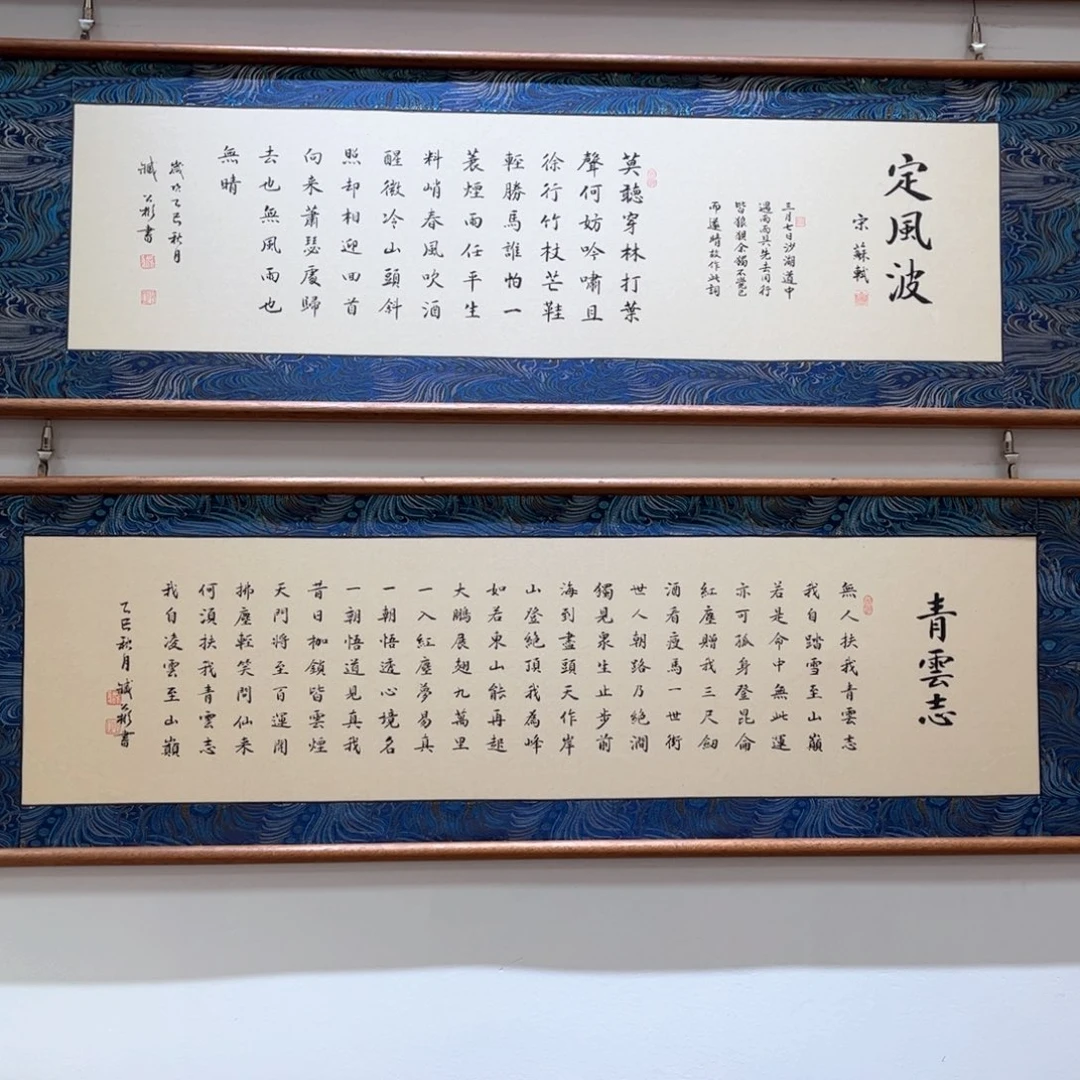 定風波
宋 蘇軾
三月七日沙湖道中
遇雨雨具先去同行
皆狼狽余獨不覺已
而遂晴故作此詞
莫聽穿林打葉
聲何妨吟嘯且
徐行竹杖芒鞋
輕勝馬誰怕一
蓑煙雨任平生
料峭春風吹酒
醒微冷山頭斜
照却相迎回首
向来蕭瑟處歸
去也無風雨也
無晴
歲次乙巳秋月
彬書
青雲志
無人扶我青雲志
我自踏雪至山巔
若是命中無此運
亦可孤身登昆侖
紅塵贈我三尺劍
酒看瘦馬一世街
世人朝路乃絕澗
獨見衆生止步前
海到盡頭天作岸
山登絕頂我為峰
如若東山能再起
大鵬展翅九萬里
一入紅塵夢易真
一朝悟透心境名
一朝悟道見真我
昔日枷鎖皆雲煙
天門將至百運開
拂塵輕笑問仙来
何須扶我青雲志
我自凌雲至山巔
乙巳秋月
彬書